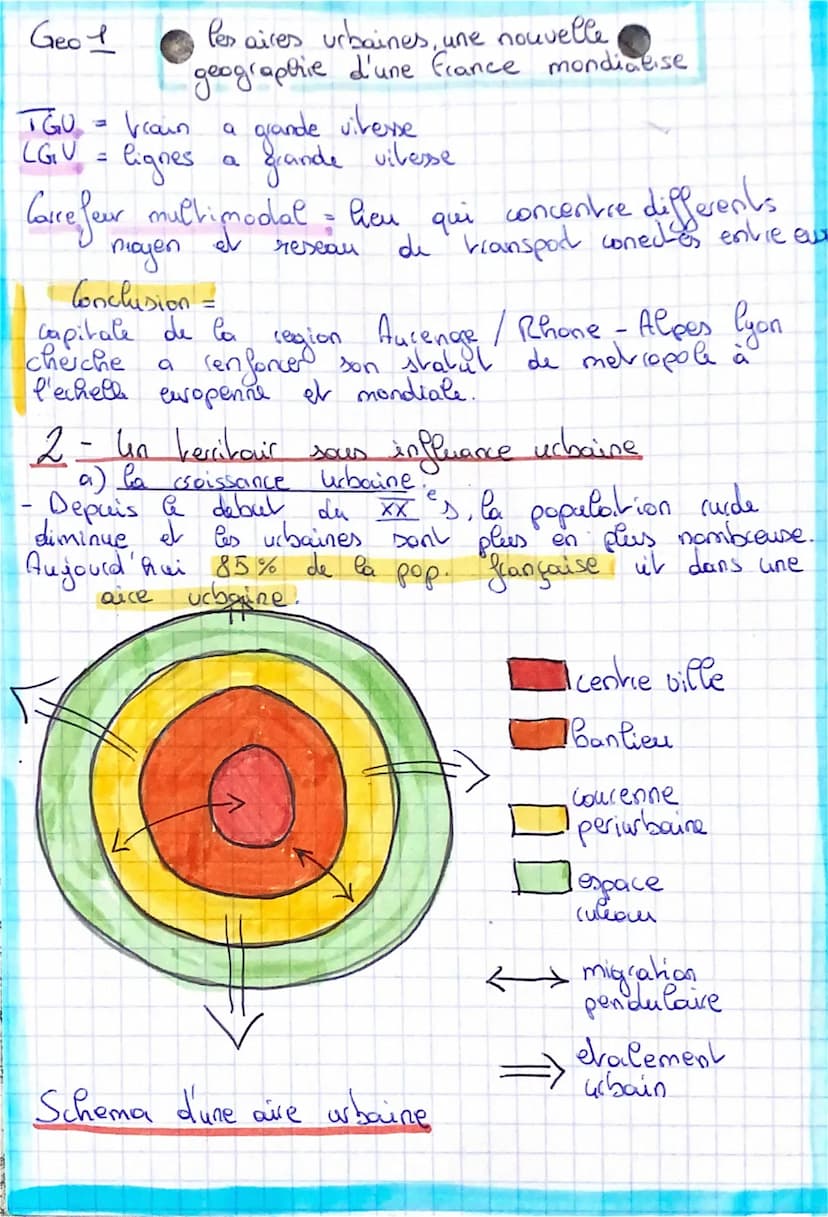 Geo 1
les aires urbaines, une nouvelle
geographie d'une france mondialise
TGV = train a grande vitesse
LGV = lignes a grande vitesse
Carrefour multimodal = lieu qui concentre differents
moyen et reseau de transport conectés entre eux
Conclusion =
capitale de la region Auvergne / Rhone - Alpes lyon
cherche a renforcer son statut de metropole à
l'echelle europenne et mondiale.
2 - Un territoir sous influance urbaine
a) la croissance urbaine.
- Depuis le debut du XXe s, la population rurale
diminue et les urbaines sont plus en plus nombreuse.
Aujourd'hui 85% de la pop. française vit dans une
aire urbaine.
centre ville
banlieu
courenne
periurbaine
espace
ruraux
migration
pendulaire
etalement
urbain
Schema d'une aire urbaine